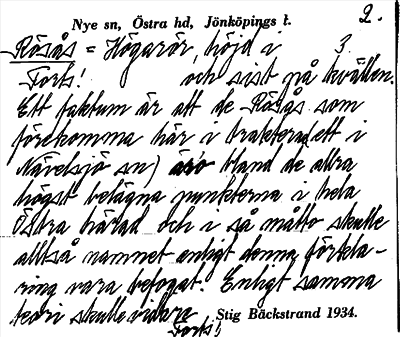 Nye sn, Östra hd, Jönköpings l. 2.
Rösås = Högarör, höjd i 3.
Forts! och sist på kvällen.
Ett faktum är att de Rösås som
förekomma här i trakten (ett i
Nävelsjö sn) äro bland de allra
högst belägna punkterna i hela
Östra härad och i så måtto skulle
alltså namnet enligt denna förkla-
ring vara befogat. Enligt samma
teori skulle vidare Stig Bäckstrand 1934.
Forts!